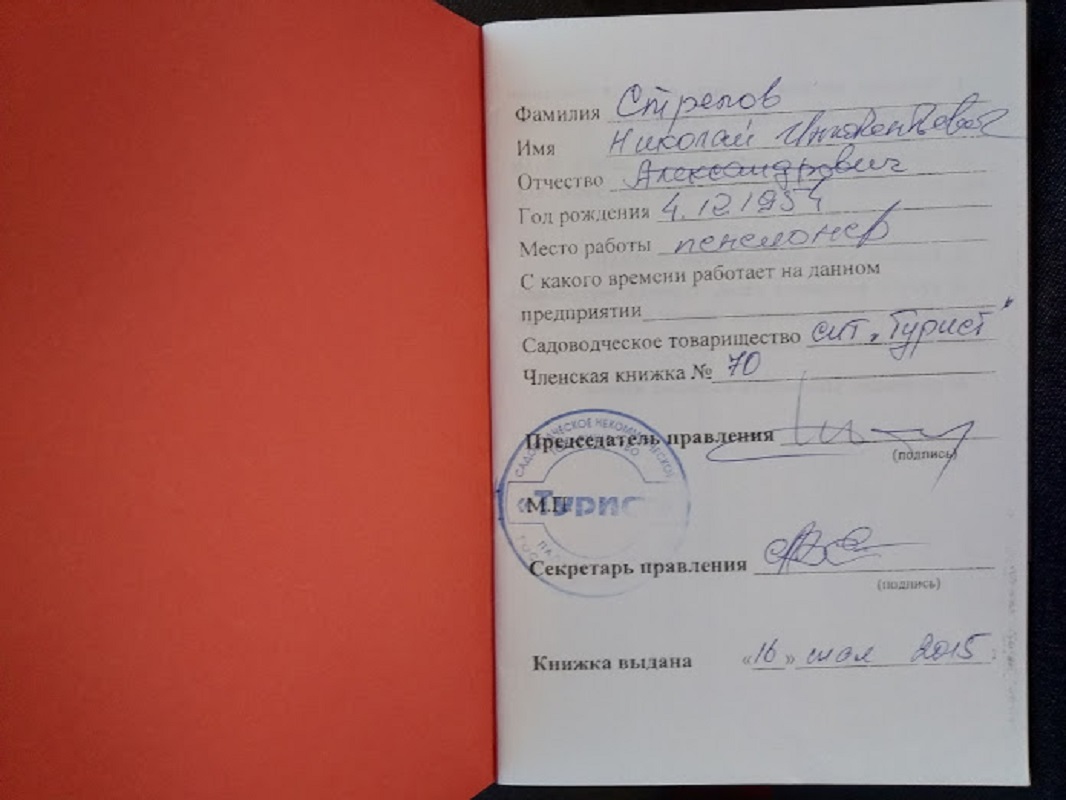 Фамилия Стрелов
Имя Николай Иннокентьевич
Отчество Александрович
Год рождения 4.12.1954
Место работы пенсионер
С какого времени работает на данном
предприятии
Садоводческое товарищество снт „Турист"
Членская книжка № 70
Председатель правления
(подпись)
САДОВОДЧЕСКОЕ НЕКОММЕРЧЕСКОЕ
«Турис
М.П
Секретарь правления
(подпись)
Книжка выдана «16» мая 2015